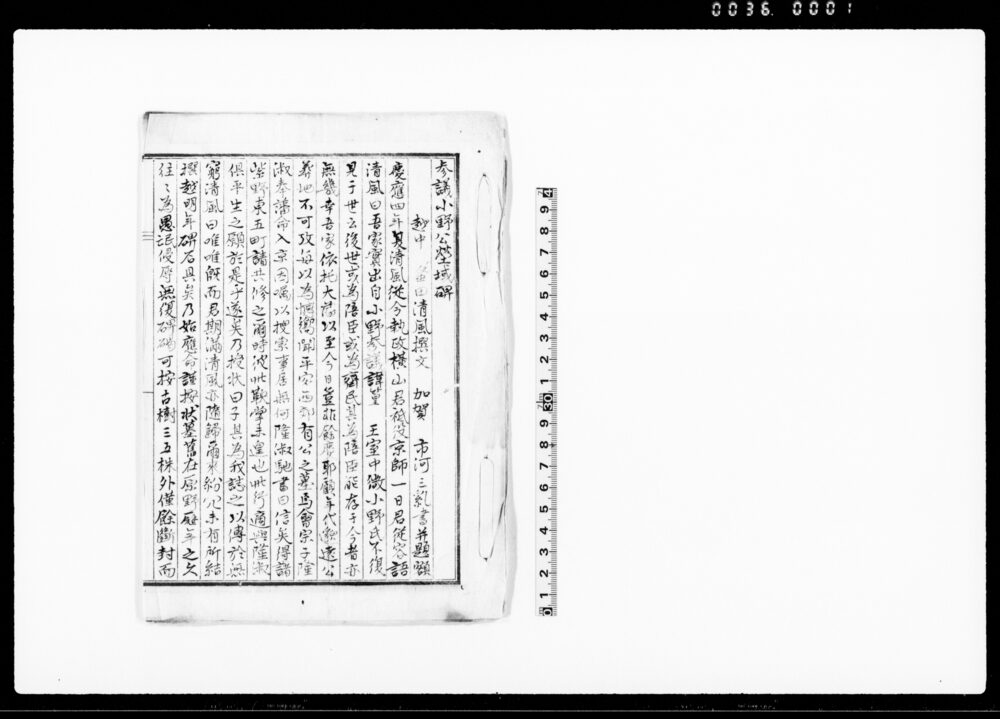 0036 0001
參議小野公塋域碑
越中 田清風撰文 加賀 市河三亥書并題額
慶應四年夏清風從今執政橫山君祗役京師一日君從容語
清風曰吾家實出自小野參議諱篁 王室中微小野氏不復
見于世云後世或為陪臣或為齊民其為陪臣能存于今者亦
無幾幸吾家依托大藩以至今日豈非餘慶耶顧年代邈遠公
葬地不可攷每以為憾嚮聞平安西郊有公之墓焉會宗子隆
淑奉藩命入京因囑以搜索事居無何隆淑馳書曰信矣得諸
紫野東五町請共修之爾時彼此鞅掌未遑也此行適與隆淑
俱平生之願於是乎遂矣乃授狀曰子其為我誌之以傳於無
窮清風曰唯唯既而君期滿清風亦隨歸爾來紛冗未有所結
撰越明年碑石具矣乃始應命謹按狀墓舊在原野歷年之久
往〻為愚氓侵辱無復碑碣可按古樹三五株外僅餘斷封而
0 1 2 3 4 5 6 7 8 9 10 1 2 3 4 5 6 7 8 9